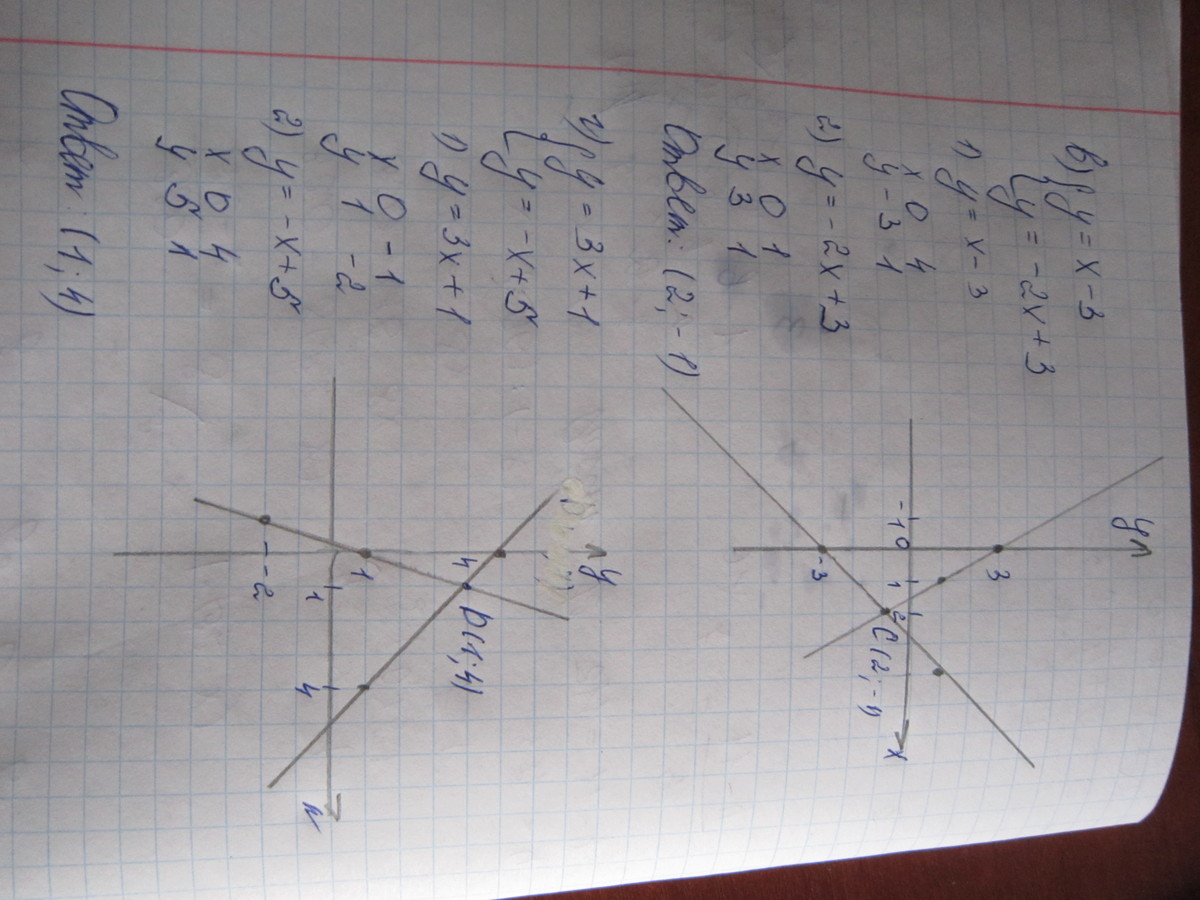 в) { y = x - 3
{ y = -2x + 3
1) y = x - 3
x 0 4
y -3 1
2) y = -2x + 3
x 0 1
y 3 1
Ответ: (2; -1)
y
3
-1 0 1 2 x
C(2; -1)
-3
г) { y = 3x + 1
{ y = -x + 5
1) y = 3x + 1
x 0 -1
y 1 -2
2) y = -x + 5
x 0 4
y 5 1
Ответ: (1; 4)
y
4 D(1; 4)
1
1 4 x
-2